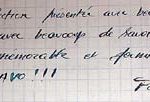 ction présentée avec bea
avec beaucoup de savoir
mémorable et forma
AVO!!!